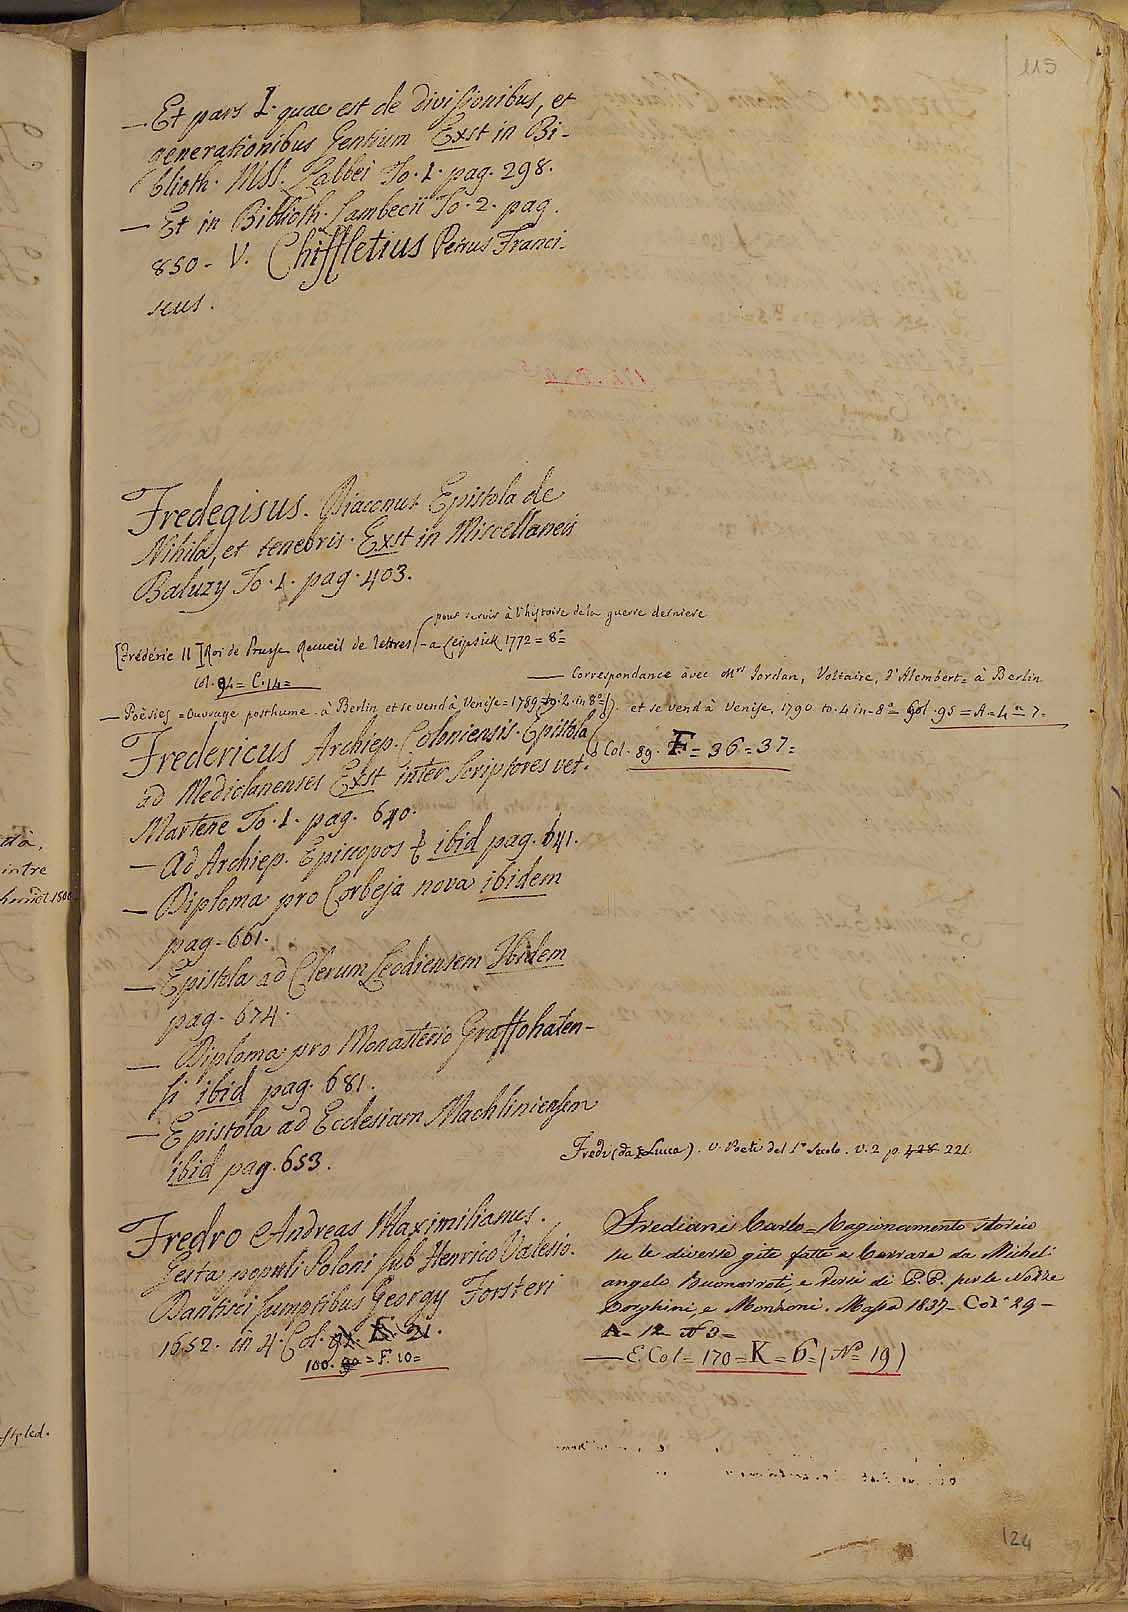 115
— Et pars I. quae est de divisionibus, et
generationibus Gentium Exst in Bi-
blioth. MSS. Labbei To. 1. pag. 298.
— Et in Biblioth. Lambecii To. 2. pag.
850 - V. Chiffletius Petrus Franci-
scus.
Fredegisus. Diaconus Epistola de
Nihilo, et tenebris. Exst in Miscellaneis
Baluzy To. 1. pag. 403.
pour servir à l'histoire de la guerre derniere
[Frédéric II] Roi de Prusse Recueil de lettres - a Leipsick 1772 = 8°
Col. 94 = C. 14 =
— Correspondance avec Mrs Jordan, Voltaire, D'Alembert = à Berlin
— Poèsies = Ouvrage posthume à Berlin et se vend à Venise = 1789 to. 2. in 8°
et se vend à Venise, 1790 to. 4 in-8° Col. 95 = A = 4 = 7.
Col. 89. F = 36 = 37 =
Fredericus Archiep. Coloniensis. Epistola
ad Mediolanenses Exst inter Scriptores vet.
Martene To. 1. pag. 640.
— Ad Archiep. Episcopos & ibid pag. 641.
— Diploma pro Corbeja nova ibidem
pag. 661.
— Epistola ad Clerum Leodiensem Ibidem
pag. 674.
— Diploma pro Monasterio Graffohaten-
si ibid pag. 681.
— Epistola ad Ecclesiam Machliniensem
ibid pag. 653.
Fredi (da Lucca). V. Poeti del 1° Secolo. V. 2 p. 228 221.
Fredro Andreas Maximilianus.
Gesta populi Poloni sub Henrico Valesio.
Dantisci sumptibus Georgy Forsteri
1652. in 4. Col. 91. E. 21.
100. 90 = F. 10 =
Frediani Carlo - Ragionamento storico
su le diverse gite fatte a Carrara da Michel-
angelo Buonarroti, e versi di P.P. per le Nozze
Borghini, e Monzoni. Massa 1837 - Col. 29 -
A - 12 - N 3 =
— E. Col = 170 = K = 6 = (N° 19)
124
da,
intre